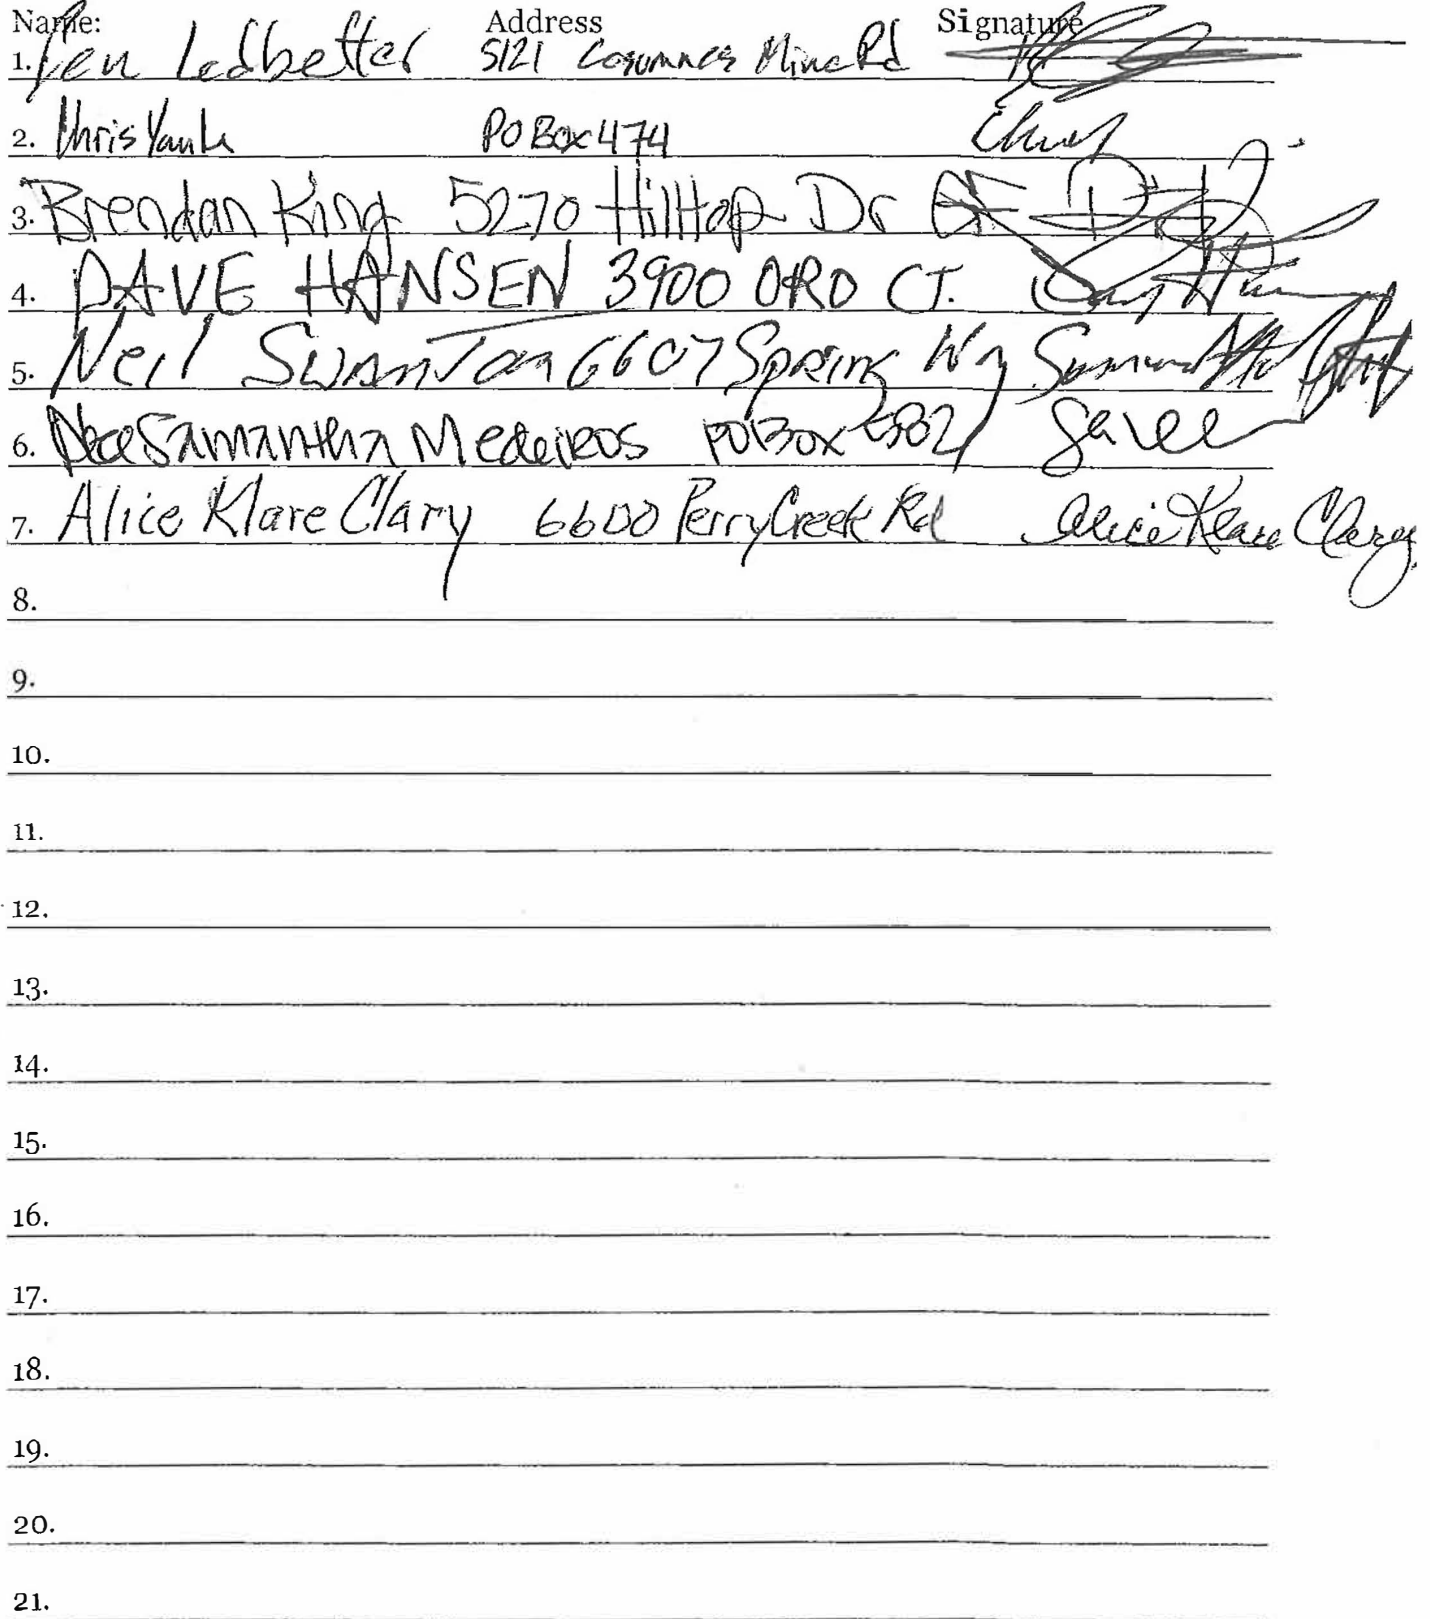 Name: Address Signature
1. Ledbetter 5121 Cosumnes Mine Rd
2. Chris PO Box 474
3. Brendan King 5270 Hilltop Dr
4. DAVE HANSEN 3900 ORD CT.
5. Neil Swanton 6607 Spring Wy
6. Samantha Medeiros PO Box
7. Alice Klare Clary 6600 Perry Creek Rd Alice Klare Clary
8.
9.
10.
11.
12.
13.
14.
15.
16.
17.
18.
19.
20.
21.